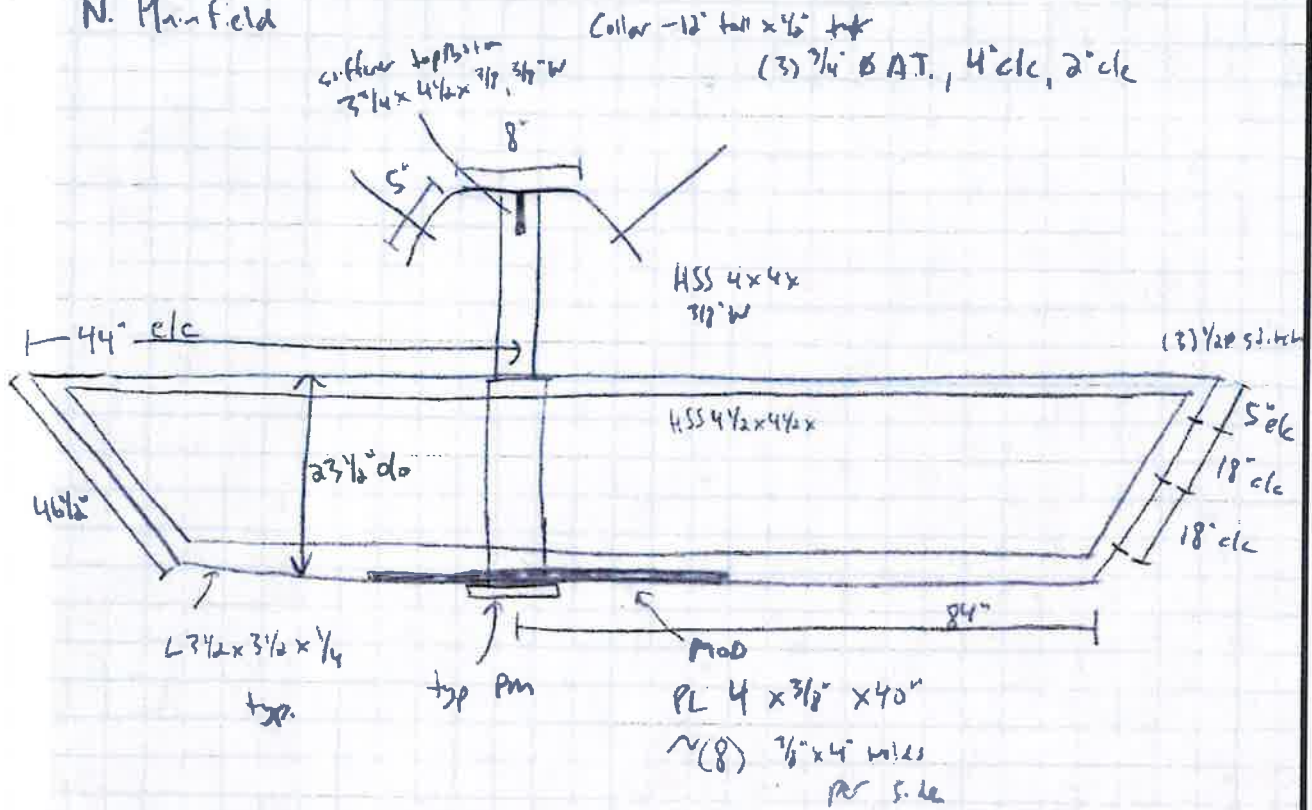 N. Mainfield
Collar - 12" tall x 1/2"
(3) 3/4" Ø A.T., 4" c/c, 2" c/e
stiffener top/Bottom
3 3/4 x 4 1/2 x 3/8, 3/8" W
8"
5"
HSS 4x4x
3/8" W
44" c/c
(3) 1/2 Ø stitch
5" e/c
HSS 4 1/2 x 4 1/2 x
23 1/2" o/o
18" c/c
46 1/2"
18" c/c
84"
L 3 1/2 x 3 1/2 x 1/4
typ.
typ PM
MOD
PL 4 x 3/8" x 40"
~(8) 3/8" x 4" welds
per side